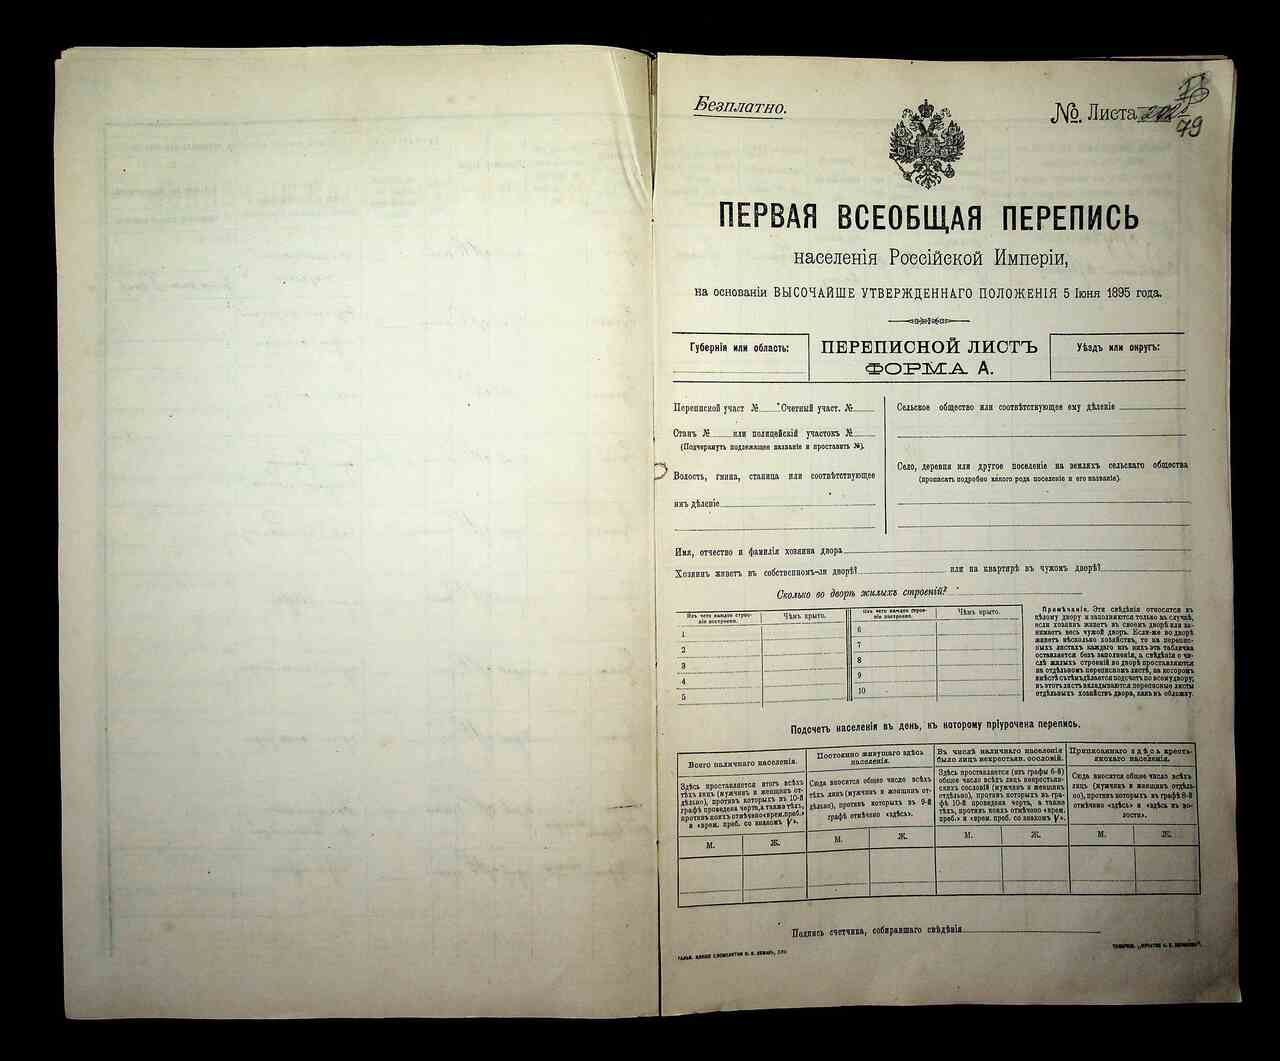 Безплатно.
№. Листа
79
ПЕРВАЯ ВСЕОБЩАЯ ПЕРЕПИСЬ
населенія Россійской Имперіи,
на основаніи ВЫСОЧАЙШЕ УТВЕРЖДЕННАГО ПОЛОЖЕНІЯ 5 Іюня 1895 года.
Губернія или область:
ПЕРЕПИСНОЙ ЛИСТЪ
ФОРМА А.
Уѣздъ или округъ:
Переписной участ № Счетный участ. №
Станъ № или полицейскій участокъ №
(Подчеркнуть подлежащее названіе и проставить №).
Волость, гмина, станица или соотвѣтствующее
имъ дѣленіе
Сельское общество или соотвѣтствующее ему дѣленіе
Село, деревня или другое поселеніе на земляхъ сельскаго общества
(прописать подробно какого рода поселеніе и его названіе).
Имя, отчество и фамилія хозяина двора
Хозяинъ живетъ въ собственномъ-ли дворѣ? или на квартирѣ въ чужомъ дворѣ?
Сколько во дворѣ жилыхъ строеній?
Изъ чего каждое строе-
ніе построено.
Чѣмъ крыто.
1
2
3
4
5
Изъ чего каждое строе-
ніе построено.
Чѣмъ крыто.
6
7
8
9
10
Примѣчаніе. Эти свѣдѣнія относятся къ
цѣлому двору и заполняются только въ случаѣ,
если хозяинъ живетъ въ своемъ дворѣ или за-
нимаетъ весь чужой дворъ. Если-же во дворѣ
живетъ нѣсколько хозяйствъ, то на перепис-
ныхъ листахъ каждаго изъ нихъ эта табличка
оставляется безъ заполненія, а свѣдѣнія о чи-
слѣ жилыхъ строеній во дворѣ проставляются
на отдѣльномъ переписномъ листѣ, на которомъ
вмѣстѣ съ тѣмъ дѣлается подсчетъ по всему двору;
въ этотъ листъ вкладываются переписные листы
отдѣльныхъ хозяйствъ двора, какъ въ обложку.
Подсчетъ населенія въ день, къ которому пріурочена перепись.
Всего наличнаго населенія.
Здѣсь проставляется итогъ всѣхъ
тѣхъ лицъ (мужчинъ и женщинъ от-
дѣльно), противъ которыхъ въ 10-й
графѣ проведена черта, а также тѣхъ,
противъ коихъ отмѣчено «врем. преб.»
и «врем. преб. со знакомъ V».
М. Ж.
Постоянно живущаго здѣсь
населенія.
Сюда вносится общее число всѣхъ
тѣхъ лицъ (мужчинъ и женщинъ от-
дѣльно), противъ которыхъ въ 9-й
графѣ отмѣчено «здѣсь».
М. Ж.
Въ числѣ наличнаго населенія
было лицъ некрестьян. сословій.
Здѣсь проставляется (изъ графы 6-й)
общее число всѣхъ лицъ некрестьян-
скихъ сословій (мужчинъ и женщинъ
отдѣльно), противъ которыхъ въ гра-
фѣ 10-й проведена черта, а также
тѣхъ, противъ коихъ отмѣчено «врем.
преб.» и «врем. преб. со знакомъ V».
М. Ж.
Приписаннаго здѣсь кресть-
янскаго населенія.
Сюда вносится общее число всѣхъ
лицъ (мужчинъ и женщинъ отдѣль-
но), противъ которыхъ въ графѣ 8-й
отмѣчено «здѣсь» и «здѣсь въ во-
лости».
М. Ж.
Подпись счетчика, собиравшаго свѣдѣнія